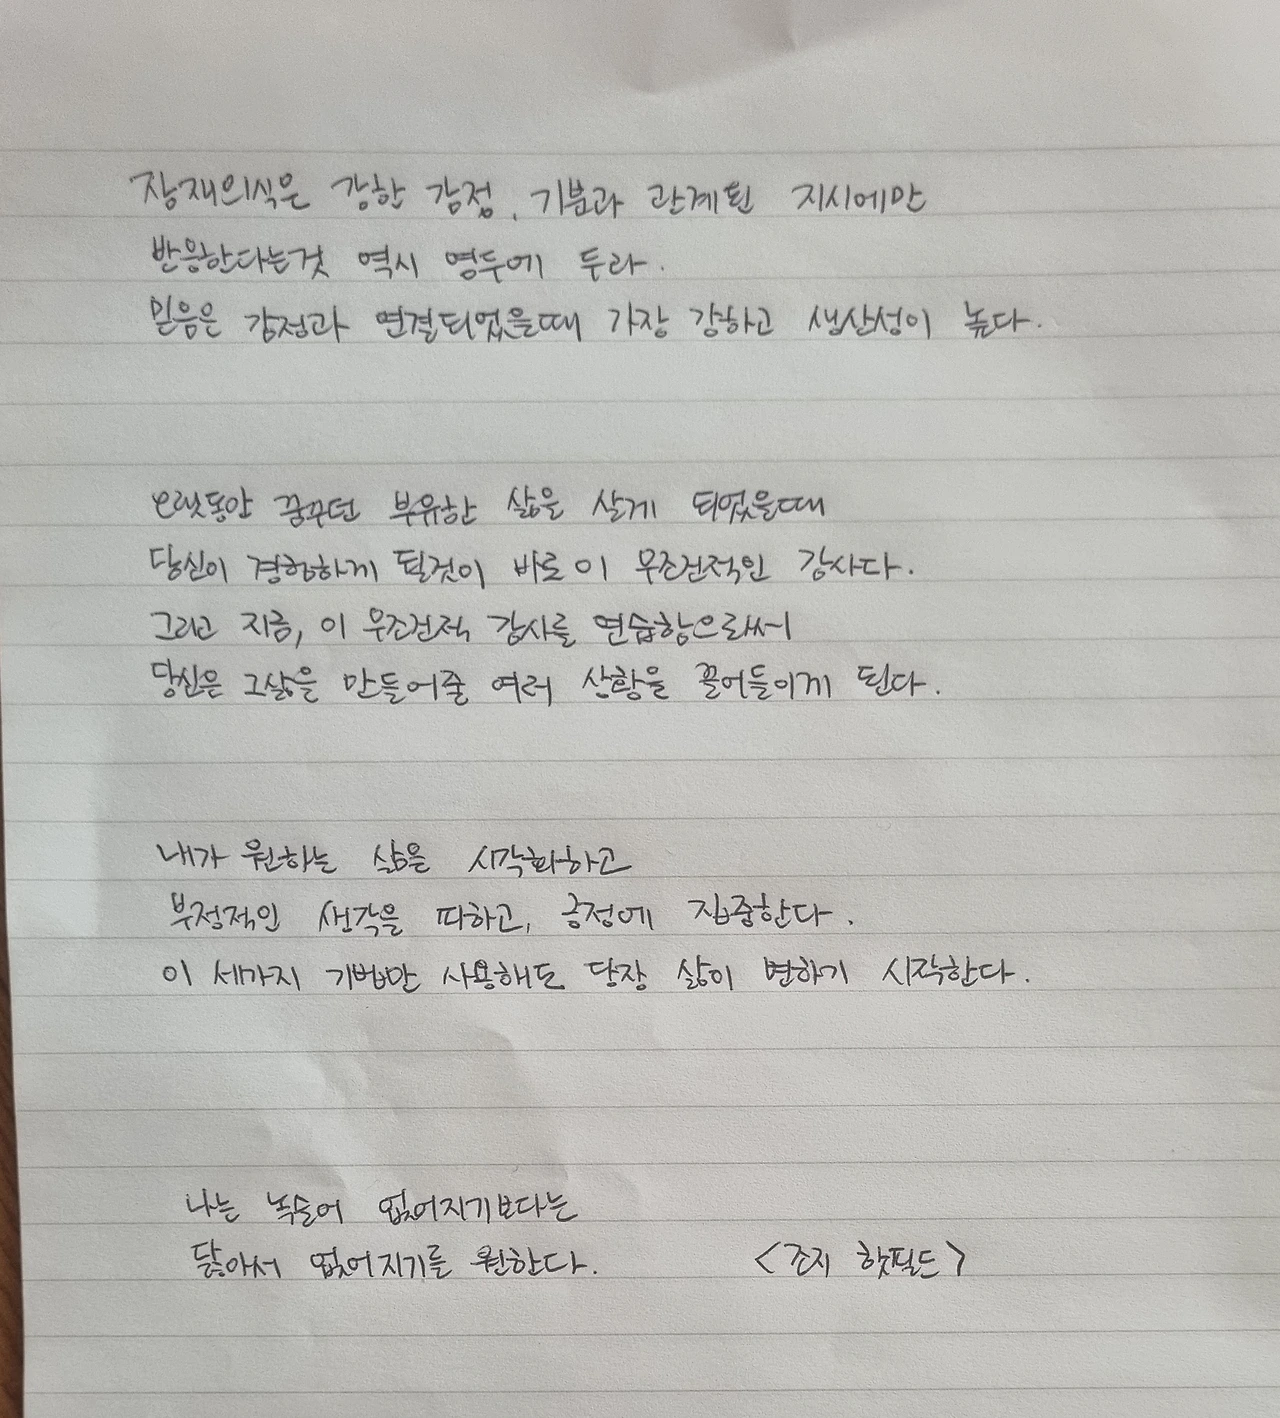 잠재의식은 강한 감정, 기분과 관계된 지시에만
반응한다는것 역시 염두에 두라.
믿음은 감정과 연결되었을때 가장 강하고 생산성이 높다.
오랫동안 꿈꾸던 부유한 삶을 살게 되었을때
당신이 경험하게 될것이 바로 이 무조건적인 감사다.
그리고 지금, 이 무조건적 감사를 연습함으로써
당신은 그삶을 만들어줄 여러 상황을 끌어들이게 된다.
내가 원하는 삶을 시각화하고
부정적인 생각을 피하고, 긍정에 집중한다.
이 세가지 기법만 사용해도 당장 삶이 변하기 시작한다.
나는 녹슬어 없어지기보다는
닳아서 없어지기를 원한다. <조지 휫필드>